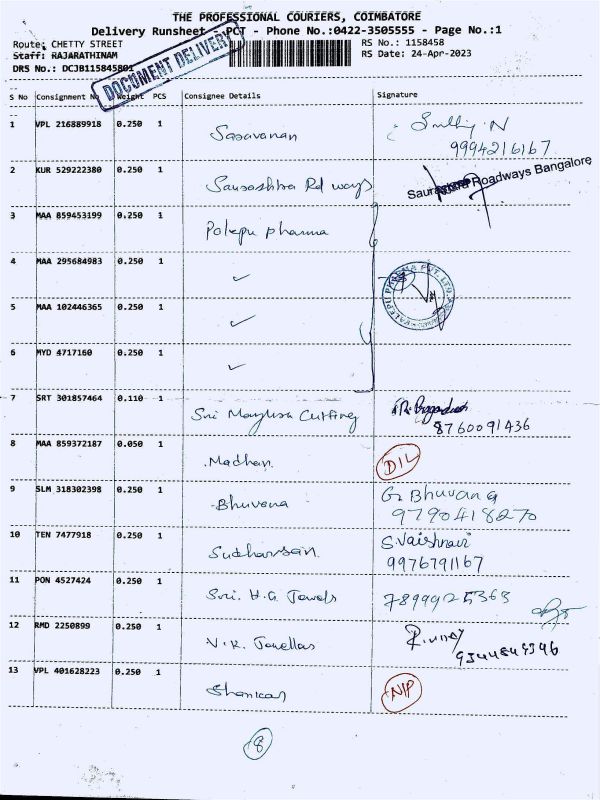 THE PROFESSIONAL COURIERS, COIMBATORE
Delivery Runsheet - PCT - Phone No.:0422-3505555 - Page No.:1
Route: CHETTY STREET RS No.: 1158458
Staff: RAJARATHINAM RS Date: 24-Apr-2023
DRS No.: DCJB115845801
DOCUMENT DELIVERY
S No Consignment No Weight PCS Consignee Details Signature
1 VPL 216889918 0.250 1 Saravanan
9994216167
2 KUR 529222380 0.250 1 Saurashtra Rd ways Roadways Bangalore
3 MAA 859453199 0.250 1 Palepu pharma
4 MAA 295684983 0.250 1 ✓
5 MAA 102446365 0.250 1 ✓
6 MYD 4717160 0.250 1 ✓
7 SRT 301857464 0.110 1 Sri Cutting
8760091436
8 MAA 859372187 0.050 1 Madhan DIL
9 SLM 318302398 0.250 1 Bhuvana G. Bhuvana
9790418270
10 TEN 7477918 0.250 1 Sudharsan S.Vaishnavi
9976791167
11 PON 4527424 0.250 1 Sri. H.G. Jewels 7899925363
12 RMD 2250899 0.250 1 V.K. Jewellas R.vinay
9344849346
13 VPL 401628223 0.250 1 Shankar NIP
8